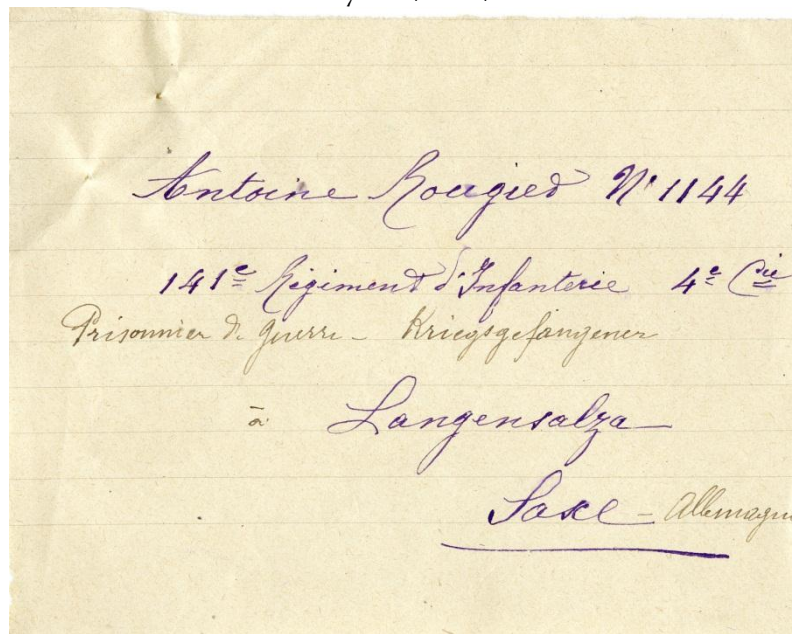 Antoine Rougied N° 1144
141e Régiment d'Infanterie 4e Cie
Prisonnier de guerre - Kriegsgefangener
à Langensalza
Saxe - Allemagne